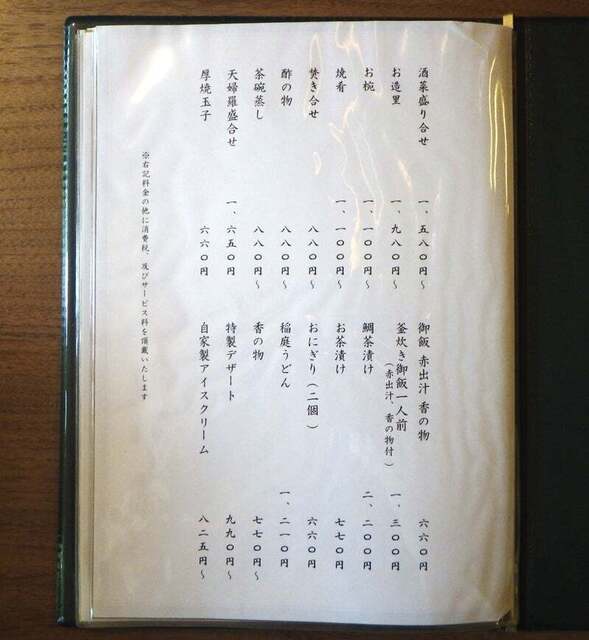 酒菜盛り合せ 一、五八〇円～
お造里 一、九八〇円～
お椀 一、一〇〇円～
焼肴 一、一〇〇円～
焚き合せ 八八〇円～
酢の物 八八〇円～
茶碗蒸し 八八〇円～
天婦羅盛合せ 一、六五〇円
厚焼玉子 六六〇円
御飯 赤出汁 香の物 六六〇円
釜炊き御飯一人前 一、三〇〇円
（赤出汁、香の物付）
鯛茶漬け 二、二〇〇円
お茶漬け 七七〇円
おにぎり（二個） 六六〇円
稲庭うどん 一、二一〇円
香の物 七七〇円～
特製デザート 九九〇円～
自家製アイスクリーム 八二五円～
※右記料金の他に消費税、及びサービス料を頂戴いたします